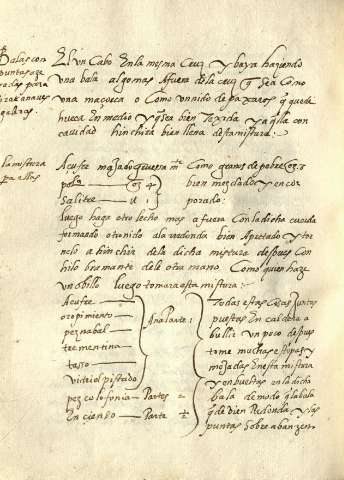 Balas con
puntas aze
radas para
tirar a naues
galeras.
El un Cabo En la mesma Cruz y baya haziendo
una bala algo mas A fuera de la cruz q̃ sea Como
una maçorca o Como un nido de paxaros q̃ quede
hueca En medio y q̃ sea bien Texida y aq̃lla con
cauidad hinchira bien llena desta mistura:
La mistura
para ellas
Açufre majado gruesa m.te Como granos de
polu.a
Salitre
bien mezclados y encor
porado:
luego haga otro lecho mas a fuera Con la dicha cuerda
formando otro nido a la redonda bien Apretado y tor
nelo a hinchir de la dicha mistura despues Con
hilo bramante dele otra mano Como quien haze
un obillo luego tomara esta mistura:
Açufre
oropimiento
pez nabal
trementina
tasso
Vidriol pistado
Ana Parte:
pez colofonia Partes =
Encienso Parte ½
Todas estas Cosas Juntas
puestas En caldera a
bullir un poco despues
tome muchas estopas y
mojadas En esta mistura
y enbueltas en la dicha
bala de modo q̃ la bala
q̃de bien Redonda y las
puntas Sobre abanzen